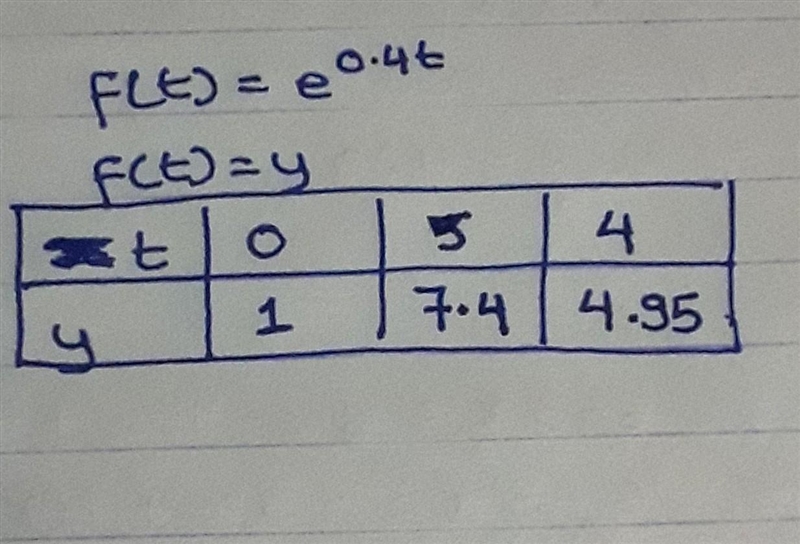 F(t) = e^0.4t
F(t) = y
t 0 5 4
y 1 7.4 4.95